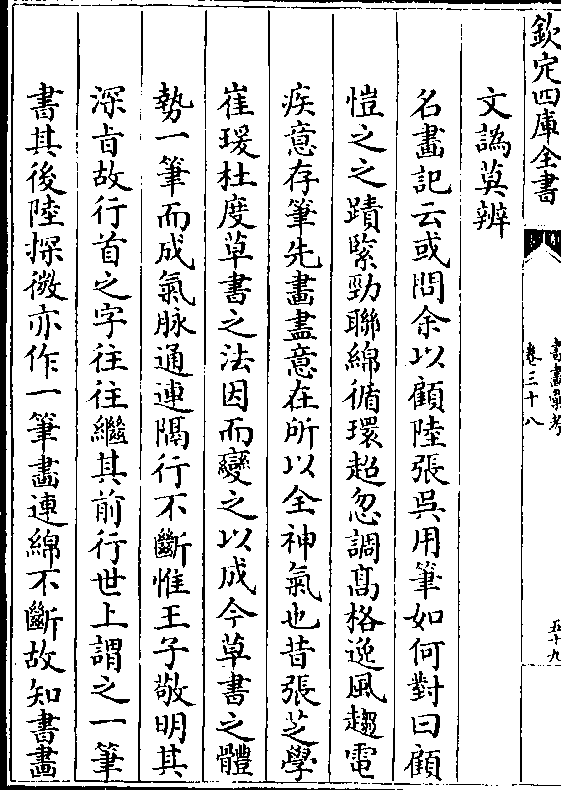 欽定四庫全書
書畫彙考
卷三十八
五十九
文譌莫辨
名畫記云或問余以顧陸張吳用筆如何對曰顧
愷之之蹟緊勁聯綿循環超忽調髙格逸風趨電
疾意存筆先畫盡意在所以全神氣也昔張芝學
崔瑗杜度草書之法因而變之以成今草書之體
勢一筆而成氣脉通連隔行不斷惟王子敬明其
深㫖故行首之字往往繼其前行世上謂之一筆
書其後陸探微亦作一筆畫連綿不斷故知書畫